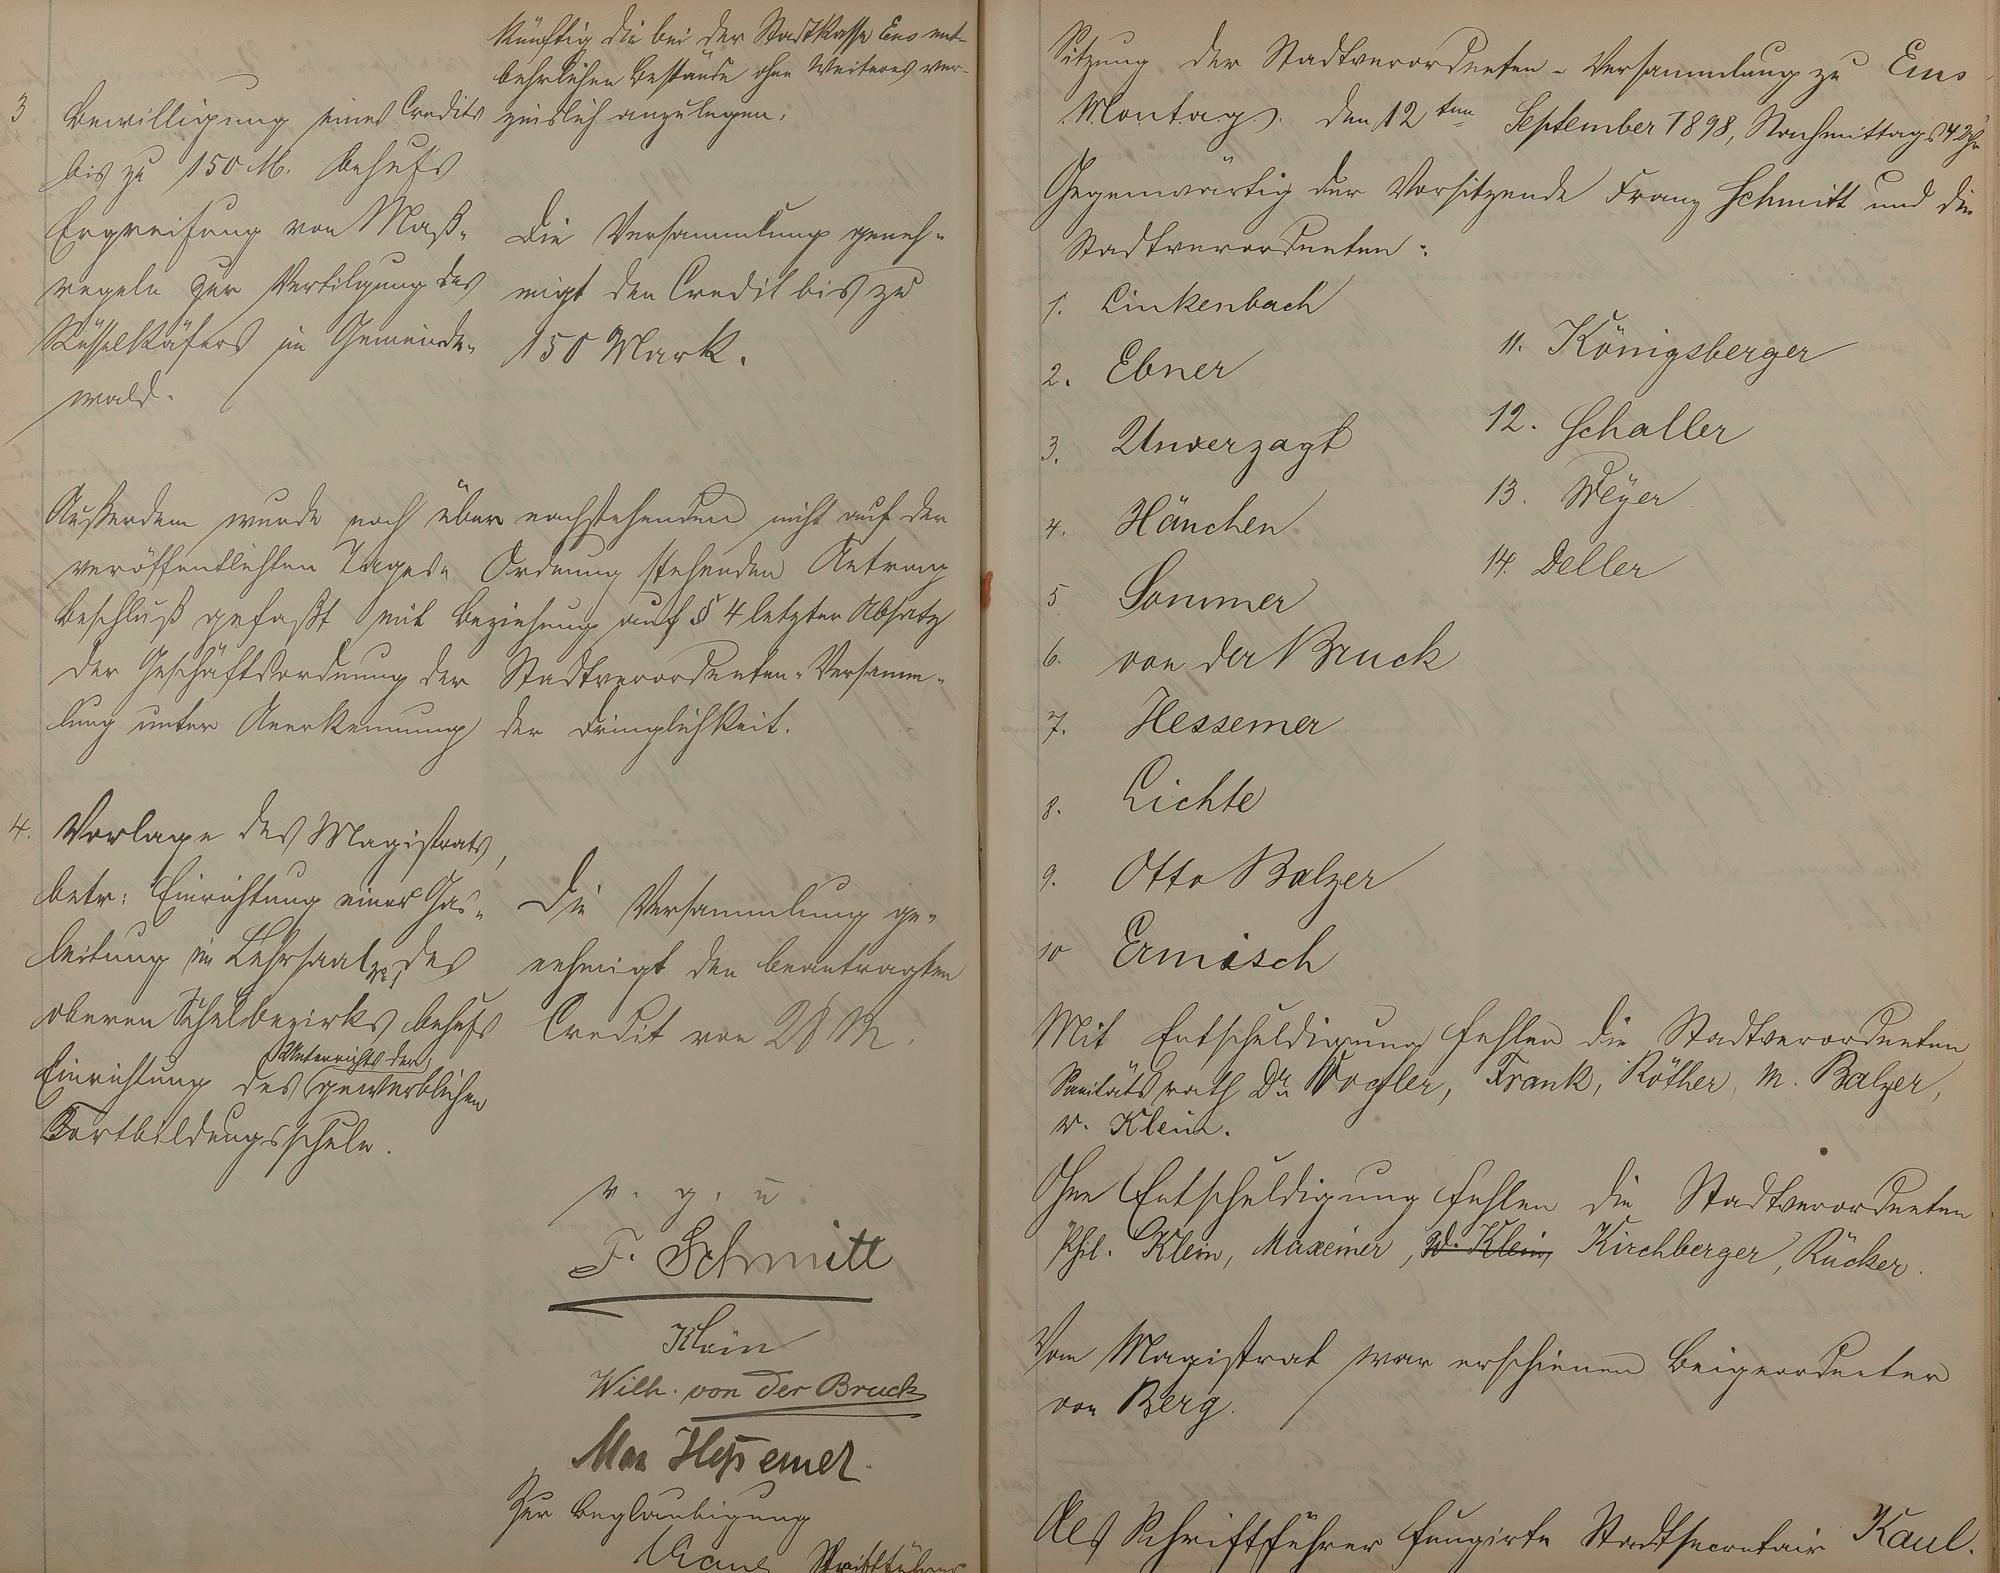 künftig die bei der Stadtkasse Ems ent-
behrlichen Bestände ohne Weiteres ver-
zinslich anzulegen.
3 Bewilligung eines Credits
bis zu 150 M. behufs
Ergreifung von Maß-
regeln zur Vertilgung des
Rüsselkäfers im Gemeinde-
wald.
Die Versammlung geneh-
migt den Credit bis zu
150 Mark.
Außerdem wurde noch über nachstehenden nicht auf der
veröffentlichten Tages-Ordnung stehenden Antrag
Beschluß gefaßt mit Beziehung auf § 4 letzter Absatz
der Geschäftsordnung der Stadtverordneten-Versamm-
lung unter Anerkennung der Dringlichkeit.
4. Vorlage des Magistrats,
betr: Einrichtung einer Gas-
leitung im Lehrsaal des
oberen Schulbezirks behufs
Einrichtung des Unterrichts der gewerblichen
Fortbildungsschule.
Die Versammlung ge-
nehmigt den beantragten
Credit von 28 M.
v. g. u.
F. Schmitt
Klein
Wilh. von der Bruck
Max Hessemer
Zur Beglaubigung
Kaul Schriftführer
Sitzung der Stadtverordneten-Versammlung zu Ems
Montags den 12ten September 1898, Nachmittags 4 Uhr
Gegenwärtig der Vorsitzende Franz Schmitt und die
Stadtverordneten:
1. Linkenbach
2. Ebner
3. Unverzagt
4. Hänchen
5 Sommer
6. von der Bruck
7. Hessemer
8. Lichte
9. Otto Balzer
10 Ermisch
11. Königsberger
12. Schaller
13. Meyer
14. Deller
Mit Entschuldigung fehlen die Stadtverordneten
Sanitätsrath Dr. Vogler, Frank, Röther, M. Balzer,
W. Klein.
Ohne Entschuldigung fehlen die Stadtverordneten
Phil. Klein, Maxeiner, W. Klein, Kirchberger, Rücker.
Vom Magistrat war erschienen Beigeordneter
von Berg.
Als Schriftführer fungirte Stadtsecretair Kaul.